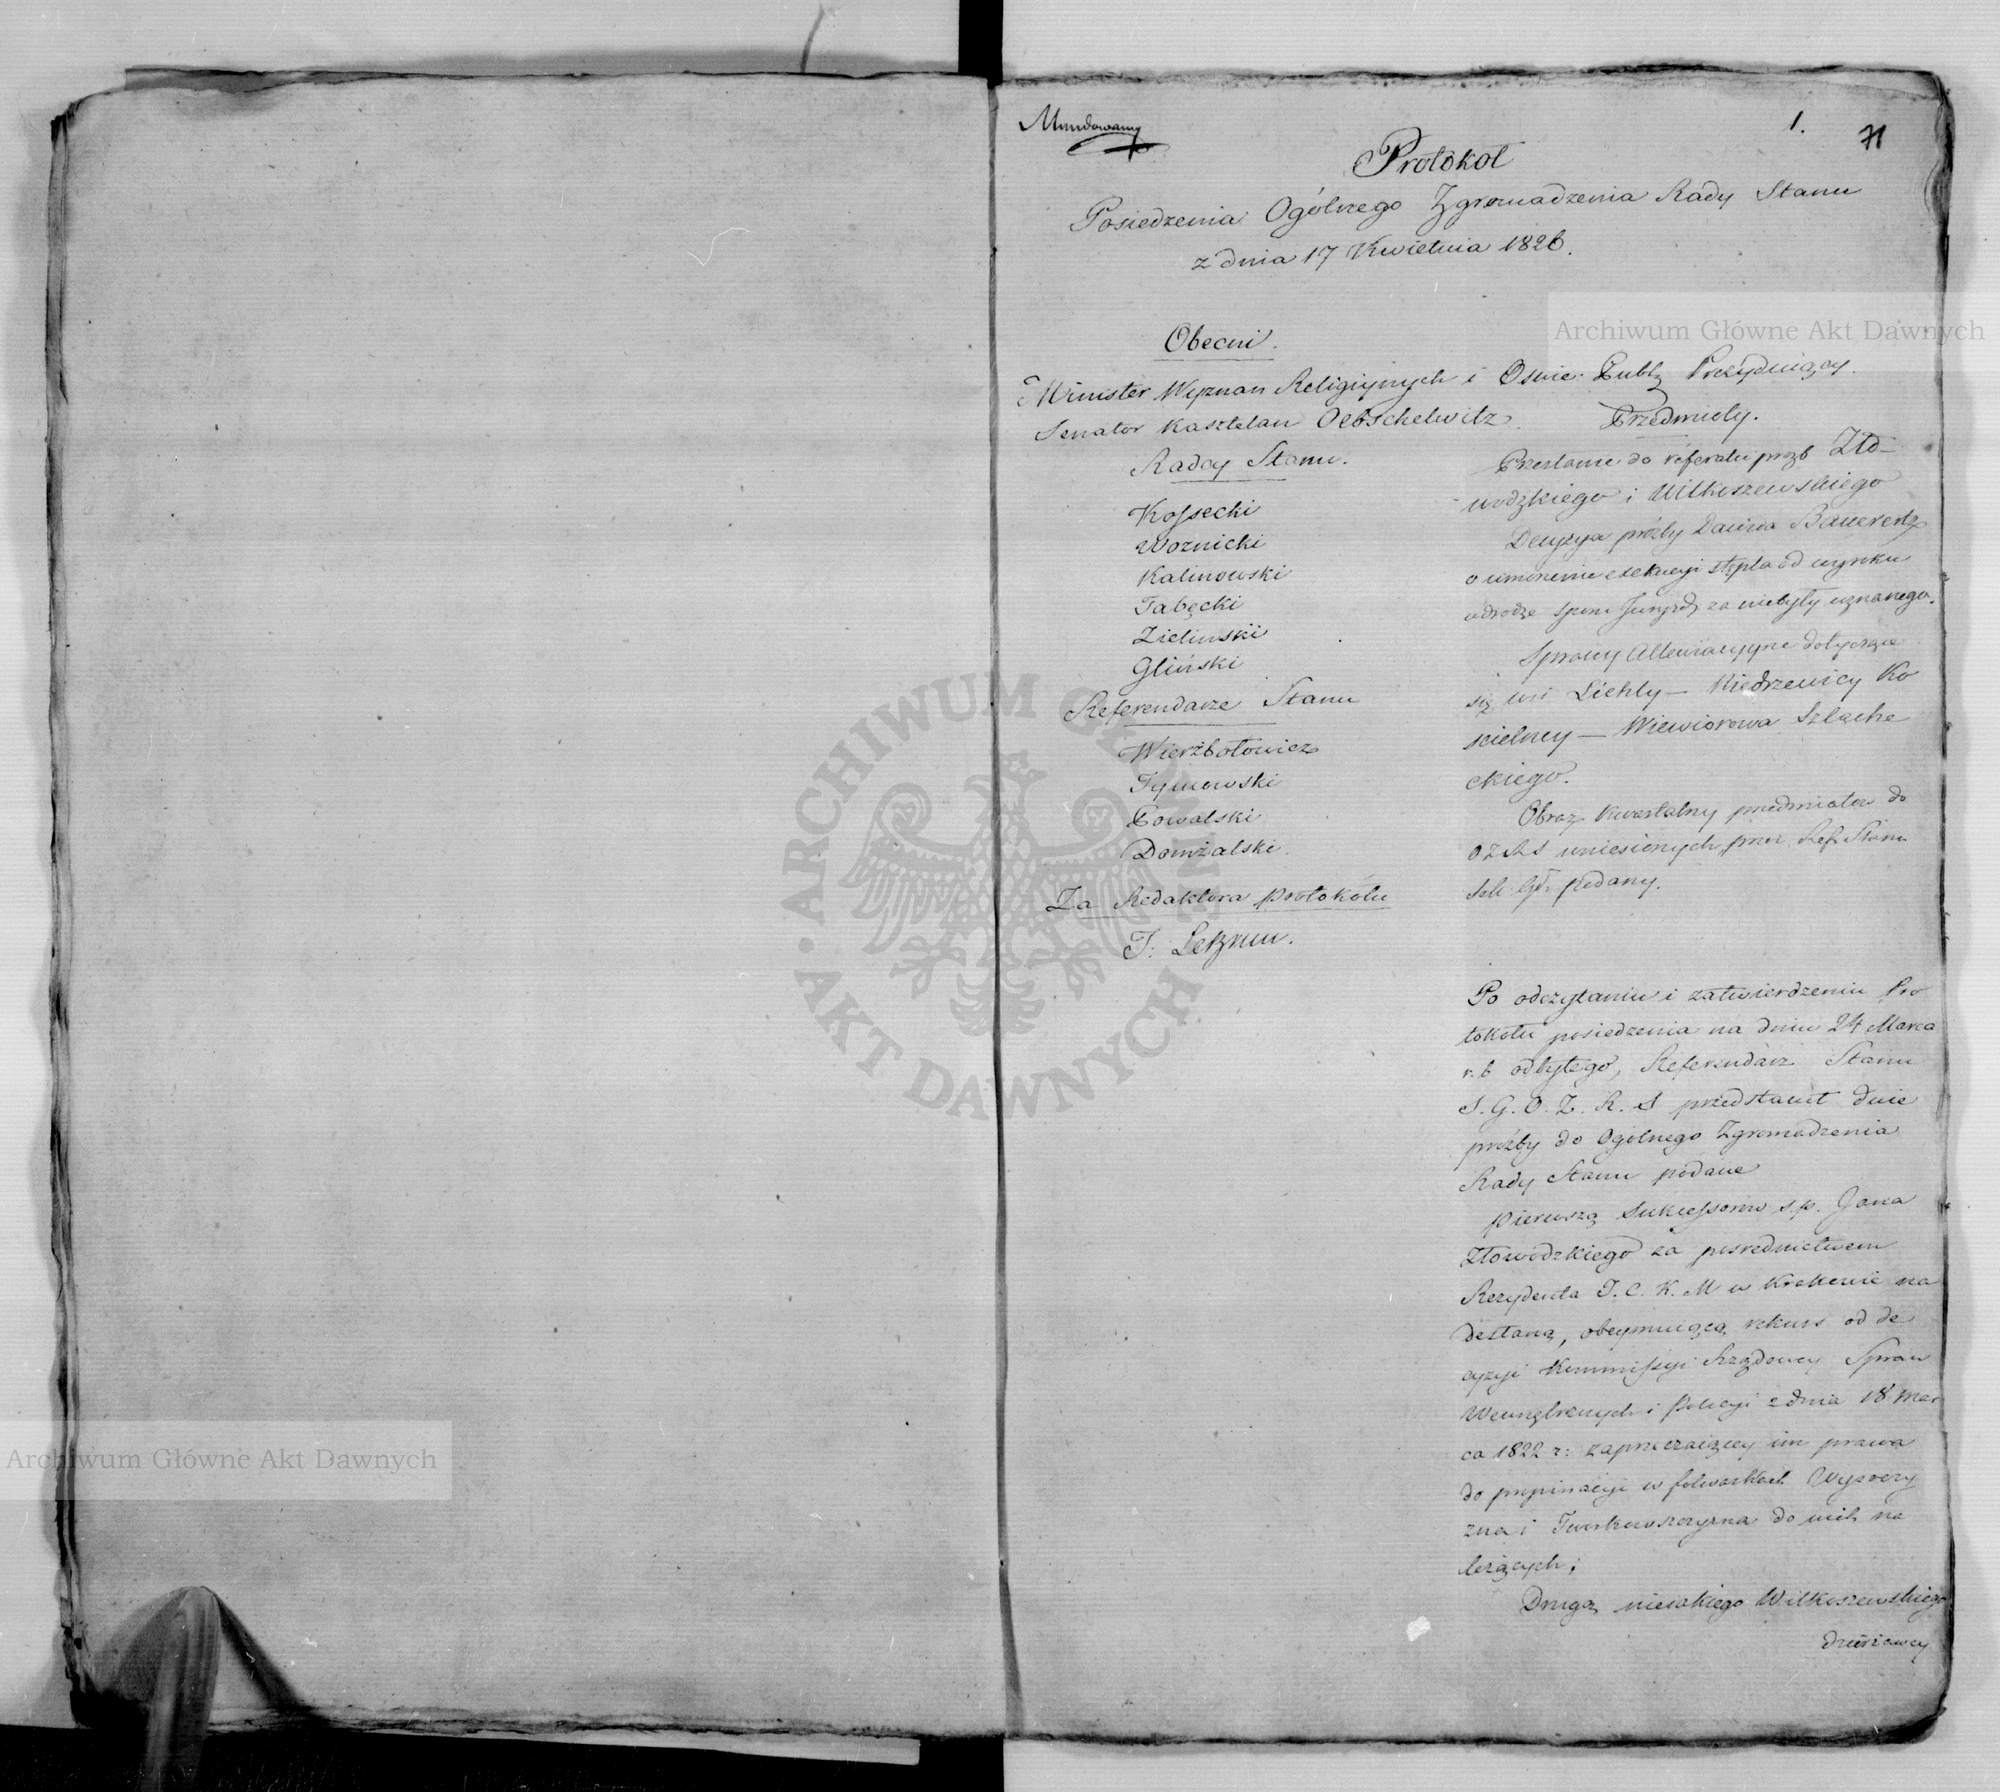 Mundowany
1.
71
Protokół
Posiedzenia Ogólnego Zgromadzenia Rady Stanu
z dnia 17 Kwietnia 1826.
Obecni.
Minister Wyznan Religiynych i Oswie: Publ: Prezyduiący.
Senator Kasztelan Oebschelwitz.
Radcy Stanu.
Kossecki
Woznicki
Kalinowski
Tabęcki
Zielinski
Gliński
Referendarze Stanu
Wierzbołowicz
Tymowski
Powalski
Domżalski
Za Redaktora Protokołu
J. Lebrun.
Przedmioty.
Przesłanie do referatu prozb Zło-
wodzkiego i Wilkoszewskiego
Decyzya prózby Daniela
o umorzenie exekucyi stępla od wyroku
w drodze sporu Juryzd: za niebyły uznanego.
Sprawy Allewiacyyne dotyczące
się wsi Lichty — Kiedrzewicy Ko
scielney — Wiewiorowa Szlache
ckiego.
Obraz kwartalny przedmiotow do
O Z R S wniesionych przez Ref. Stanu
podany.
Po odczytaniu i zatwierdzeniu Pro
tokołu posiedzenia na dniu 24 Marca
r. b odbytego, Referendarz Stanu
S. G. O. Z. R. S przedstawił dwie
prózby do Ogolnego Zgromadzenia
Rady Stanu podane
pierwszą Sukcessorow s p. Jana
Złowodzkiego za posrednictwem
Rezydenta J. C. K. M w Krakowie na
desłaną, obeymuiącą rekurs od de
cyzyi Kommissyi Rządowey Spraw
Wewnętrznych i Policyi z dnia 18 Mar
ca 1822 r: zaprzeczaiącey im prawa
do propinacyi w folwarkach Wysoczy
zna i Tworkowszczyzna do nich na
leżących;
Drugą niejakiego Wilkoszewskiego
dzierżawcy
Archiwum Główne Akt Dawnych
Archiwum Główne Akt Dawnych
ARCHIWUM GŁÓWNE • AKT DAWNYCH •